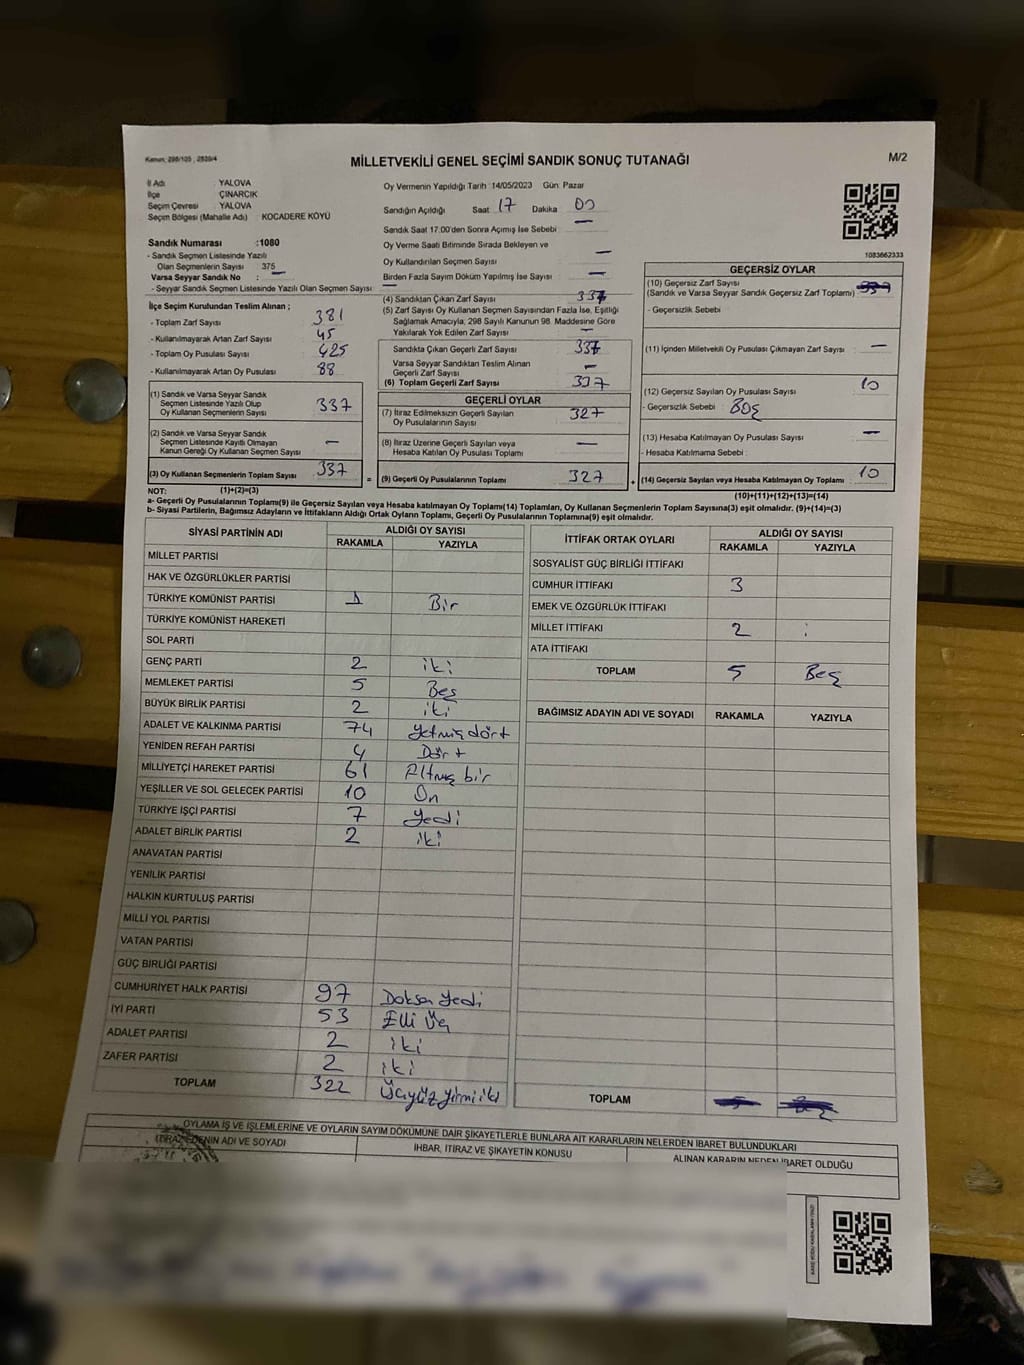 Kanun: 298/105 , 2839/4
MİLLETVEKİLİ GENEL SEÇİMİ SANDIK SONUÇ TUTANAĞI
M/2
İl Adı : YALOVA
İlçe : ÇINARCIK
Seçim Çevresi : YALOVA
Seçim Bölgesi (Mahalle Adı) : KOCADERE KÖYÜ
Sandık Numarası :1080
- Sandık Seçmen Listesinde Yazılı
Olan Seçmenlerin Sayısı 375
Varsa Seyyar Sandık No : —
- Seyyar Sandık Seçmen Listesinde Yazılı Olan Seçmen Sayısı : —
İlçe Seçim Kurulundan Teslim Alınan ;
- Toplam Zarf Sayısı 381
- Kullanılmayarak Artan Zarf Sayısı 45
- Toplam Oy Pusulası Sayısı 425
- Kullanılmayarak Artan Oy Pusulası 88
(1) Sandık ve Varsa Seyyar Sandık
Seçmen Listesinde Yazılı Olup
Oy Kullanan Seçmenlerin Sayısı 337
(2) Sandık ve Varsa Seyyar Sandık
Seçmen Listesinde Kayıtlı Olmayan
Kanun Gereği Oy Kullanan Seçmen Sayısı —
(3) Oy Kullanan Seçmenlerin Toplam Sayısı 337
(1)+(2)=(3)
Oy Vermenin Yapıldığı Tarih :14/05/2023 Gün: Pazar
Sandığın Açıldığı Saat 17 Dakika 00
Sandık Saat 17.00'den Sonra Açılmış İse Sebebi —
Oy Verme Saati Bitiminde Sırada Bekleyen ve
Oy Kullandırılan Seçmen Sayısı —
Birden Fazla Sayım Döküm Yapılmış İse Sayısı —
(4) Sandıktan Çıkan Zarf Sayısı 337
(5) Zarf Sayısı Oy Kullanan Seçmen Sayısından Fazla İse, Eşitliği
Sağlamak Amacıyla, 298 Sayılı Kanunun 98. Maddesine Göre
Yakılarak Yok Edilen Zarf Sayısı —
Sandıkta Çıkan Geçerli Zarf Sayısı 337
Varsa Seyyar Sandıktan Teslim Alınan
Geçerli Zarf Sayısı —
(6) Toplam Geçerli Zarf Sayısı 337
GEÇERLİ OYLAR
(7) İtiraz Edilmeksizin Geçerli Sayılan
Oy Pusulalarının Sayısı 327
(8) İtiraz Üzerine Geçerli Sayılan veya
Hesaba Katılan Oy Pusulaları Toplamı —
= (9) Geçerli Oy Pusulalarının Toplamı 327
1083662333
GEÇERSİZ OYLAR
(10) Geçersiz Zarf Sayısı
(Sandık ve Varsa Seyyar Sandık Geçersiz Zarf Toplamı)
- Geçersizlik Sebebi
(11) İçinden Milletvekili Oy Pusulası Çıkmayan Zarf Sayısı —
(12) Geçersiz Sayılan Oy Pusulası Sayısı 10
- Geçersizlik Sebebi : Boş
(13) Hesaba Katılmayan Oy Pusulası Sayısı —
- Hesaba Katılmama Sebebi :
+ (14) Geçersiz Sayılan veya Hesaba Katılmayan Oy Toplamı 10
(10)+(11)+(12)+(13)=(14)
NOT:
a- Geçerli Oy Pusulalarının Toplamı(9) ile Geçersiz Sayılan veya Hesaba katılmayan Oy Toplamı(14) Toplamları, Oy Kullanan Seçmenlerin Toplam Sayısına(3) eşit olmalıdır. (9)+(14)=(3)
b- Siyasi Partilerin, Bağımsız Adayların ve İttifakların Aldığı Oyların Toplamı, Geçerli Oy Pusulalarının Toplamına(9) eşit olmalıdır.
SİYASİ PARTİNİN ADI ALDIĞI OY SAYISI
RAKAMLA YAZIYLA
MİLLET PARTİSİ
HAK VE ÖZGÜRLÜKLER PARTİSİ
TÜRKİYE KOMÜNİST PARTİSİ 1 Bir
TÜRKİYE KOMÜNİST HAREKETİ
SOL PARTİ
GENÇ PARTİ 2 iki
MEMLEKET PARTİSİ 5 Beş
BÜYÜK BİRLİK PARTİSİ 2 iki
ADALET VE KALKINMA PARTİSİ 74 Yetmiş dört
YENİDEN REFAH PARTİSİ 4 Dört
MİLLİYETÇİ HAREKET PARTİSİ 61 Altmış bir
YEŞİLLER VE SOL GELECEK PARTİSİ 10 On
TÜRKİYE İŞÇİ PARTİSİ 7 Yedi
ADALET BİRLİK PARTİSİ 2 iki
ANAVATAN PARTİSİ
YENİLİK PARTİSİ
HALKIN KURTULUŞ PARTİSİ
MİLLİ YOL PARTİSİ
VATAN PARTİSİ
GÜÇ BİRLİĞİ PARTİSİ
CUMHURİYET HALK PARTİSİ 97 Doksan Yedi
İYİ PARTİ 53 Elli Üç
ADALET PARTİSİ 2 iki
ZAFER PARTİSİ 2 iki
TOPLAM 322 Üçyüz yirmi iki
İTTİFAK ORTAK OYLARI ALDIĞI OY SAYISI
RAKAMLA YAZIYLA
SOSYALİST GÜÇ BİRLİĞİ İTTİFAKI
CUMHUR İTTİFAKI 3
EMEK VE ÖZGÜRLÜK İTTİFAKI
MİLLET İTTİFAKI 2
ATA İTTİFAKI
TOPLAM 5 Beş
BAĞIMSIZ ADAYIN ADI VE SOYADI RAKAMLA YAZIYLA
TOPLAM
OYLAMA İŞ VE İŞLEMLERİNE VE OYLARIN SAYIM DÖKÜMÜNE DAİR ŞİKAYETLERLE BUNLARA AİT KARARLARIN NELERDEN İBARET BULUNDUKLARI
İTİRAZ EDENİN ADI VE SOYADI
İHBAR, İTİRAZ VE ŞİKAYETİN KONUSU
ALINAN KARARIN NEDEN İBARET OLDUĞU